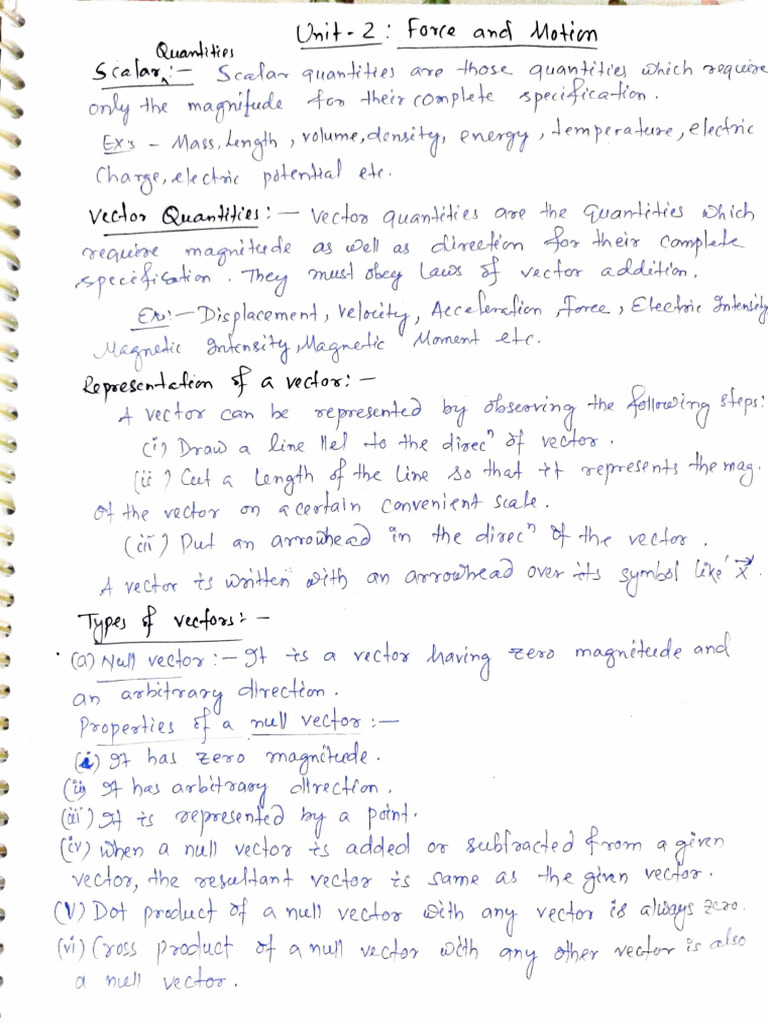 Unit-2: Force and Motion
Quantities
Scalar:- Scalar quantities are those quantities which require
only the magnitude for their complete specification.
Ex:s - Mass, Length, volume, density, energy, temperature, electric
Charge, electric potential etc.
Vector Quantities:- Vector quantities are the Quantities which
require magnitude as well as direction for their complete
specification. They must obey Laws of vector addition.
Ex:- Displacement, Velocity, Acceleration, Force, Electric Intensity,
Magnetic Intensity, Magnetic Moment etc.
Representation of a vector:-
A vector can be represented by observing the following steps:
(i) Draw a line llel to the direcⁿ of vector.
(ii) Cut a Length of the line so that it represents the mag.
of the vector on a certain convenient scale.
(iii) Put an arrowhead in the direcⁿ of the vector.
A vector is written with an arrowhead over its symbol like X⃗.
Types of vectors:-
(a) Null vector:- It is a vector having zero magnitude and
an arbitrary direction.
Properties of a null vector:-
(i) It has zero magnitude.
(ii) It has arbitrary direction.
(iii) It is represented by a point.
(iv) When a null vector is added or subtracted from a given
vector, the resultant vector is same as the given vector.
(V) Dot product of a null vector with any vector is always zero.
(vi) Cross product of a null vector with any other vector is also
a null vector.